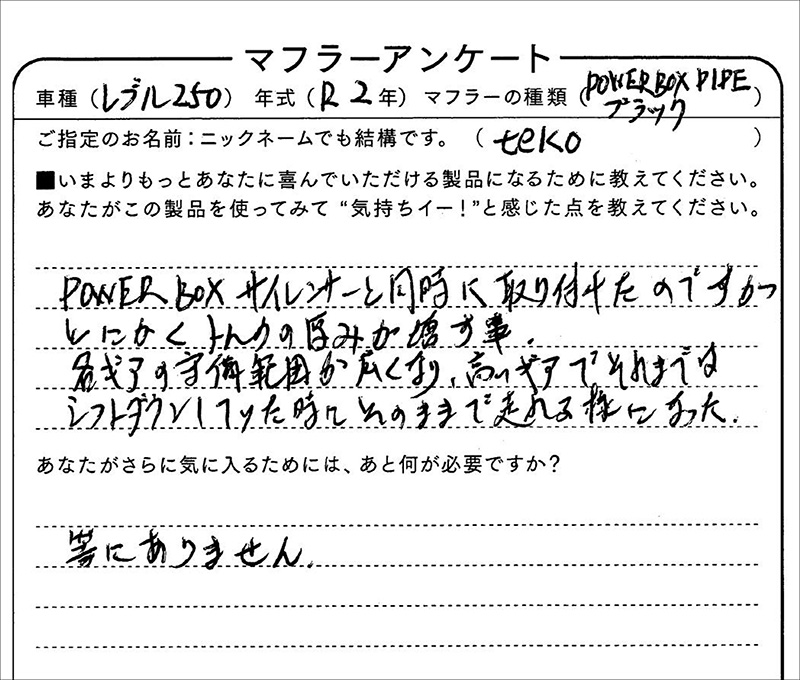 マフラーアンケート
車種（レブル250） 年式（R2年） マフラーの種類（POWER BOX PIPE ブラック）
ご指定のお名前：ニックネームでも結構です。（teko）
■いまよりもっとあなたに喜んでいただける製品になるために教えてください。
あなたがこの製品を使ってみて“気持ちイー！”と感じた点を教えてください。
POWER BOX サイレンサーと同時に取り付けたのですが
とにかくトルクの厚みが増す事。
各ギアの守備範囲が広くなり、高いギアでそれまでは
シフトダウンしていた時にそのままで走れる様になった。
あなたがさらに気に入るためには、あと何が必要ですか？
特にありません。